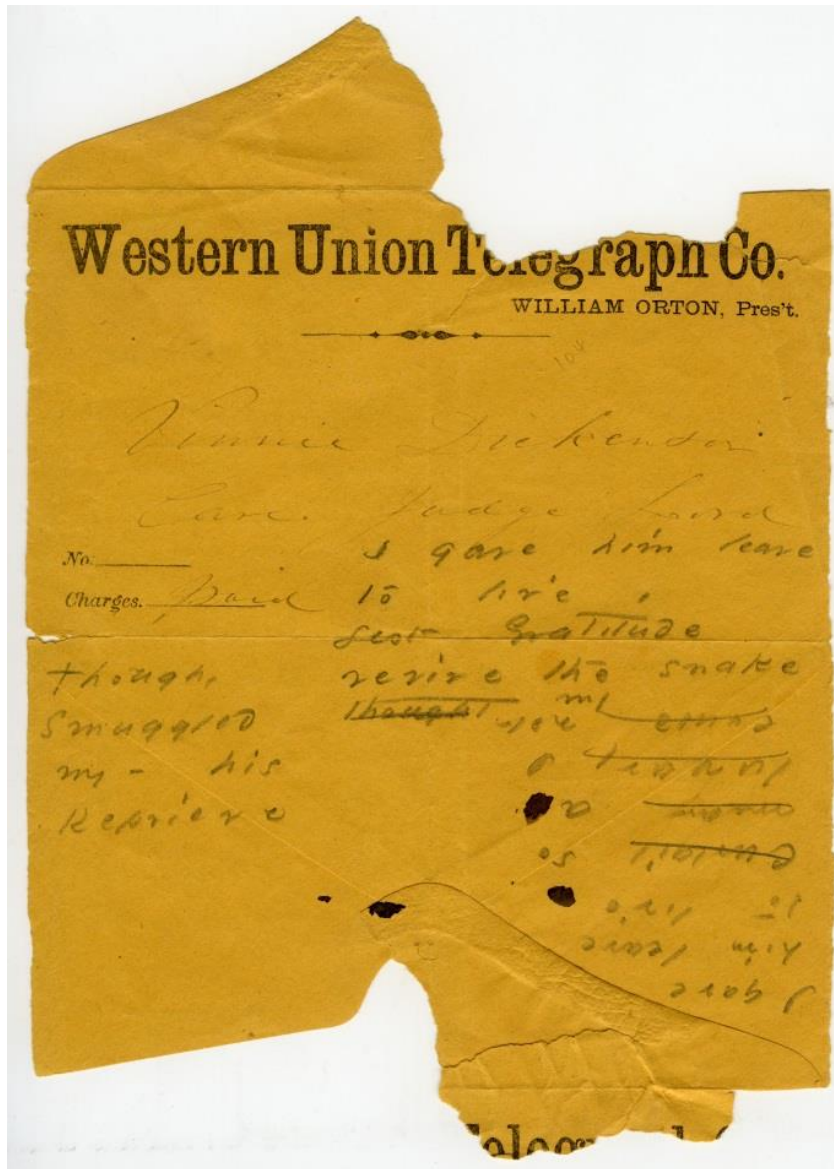 Western Union Telegraph Co.
WILLIAM ORTON, Pres't.
104
Vinnie Dickenson
Care. Judge Lord
No.
Charges. Paid
I gave him leave
to live,
Lest Gratitude
revive the snake
though
smuggled
my - his
Reprieve
Thought my
I gave
him leave
to live
so
a